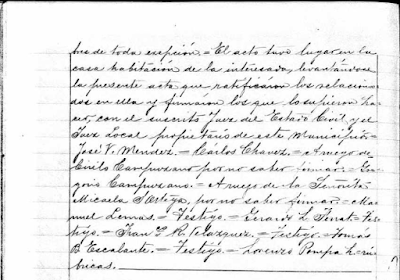 bres de toda exepción. = El acto tuvo lugar en la
casa habitación de la interesada, levantándose
la presente acta que ratificaron los relaciona-
dos en ella y firmaron los que lo supieron ha-
cer, con el suscrito Juez del Estado Civil y el
Juez Local propietario de este Municipio =
José V. Mendez. = Carlos Chavez. = A ruego de
Cirilo Campuzano por no saber firmar: = Gre-
gorio Campuzano. = A ruego de la Señorita
Micaela Ortega, por no saber firmar = Ma-
nuel Lemas. = Testigo. = Gerardo L. = Tes-
tigo. = Fran R. Velazquez. = Testigo. = Tomás
B Escalante. = Testigo. = Lorenzo Pompa = rú-
bricas.